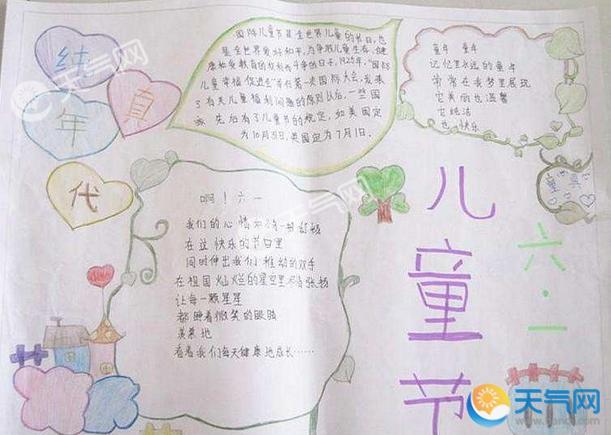 纯
真
年
代
国际儿童节是全世界儿童的节日,也
是全世界爱好和平,为争取儿童生存、健
1925年,"国际
儿童幸福促进会"
了有关儿童福利问题的
家先后有了儿童节的规定,如美国定
为10月31日,英国定为7月1日。
童年 童年
记忆里永远的童年
常常在我梦里展现
它美丽也温馨
它纯洁
也快乐
童真
啊!六一
我们的心情
在这快乐的节日里
同时伸出我们稚幼的双手
在祖国灿烂的星空里
让每一颗星星
都睁着微笑的眼睛
羡慕地
看着我们每天健康地成长……
六·一
儿童节
天气网